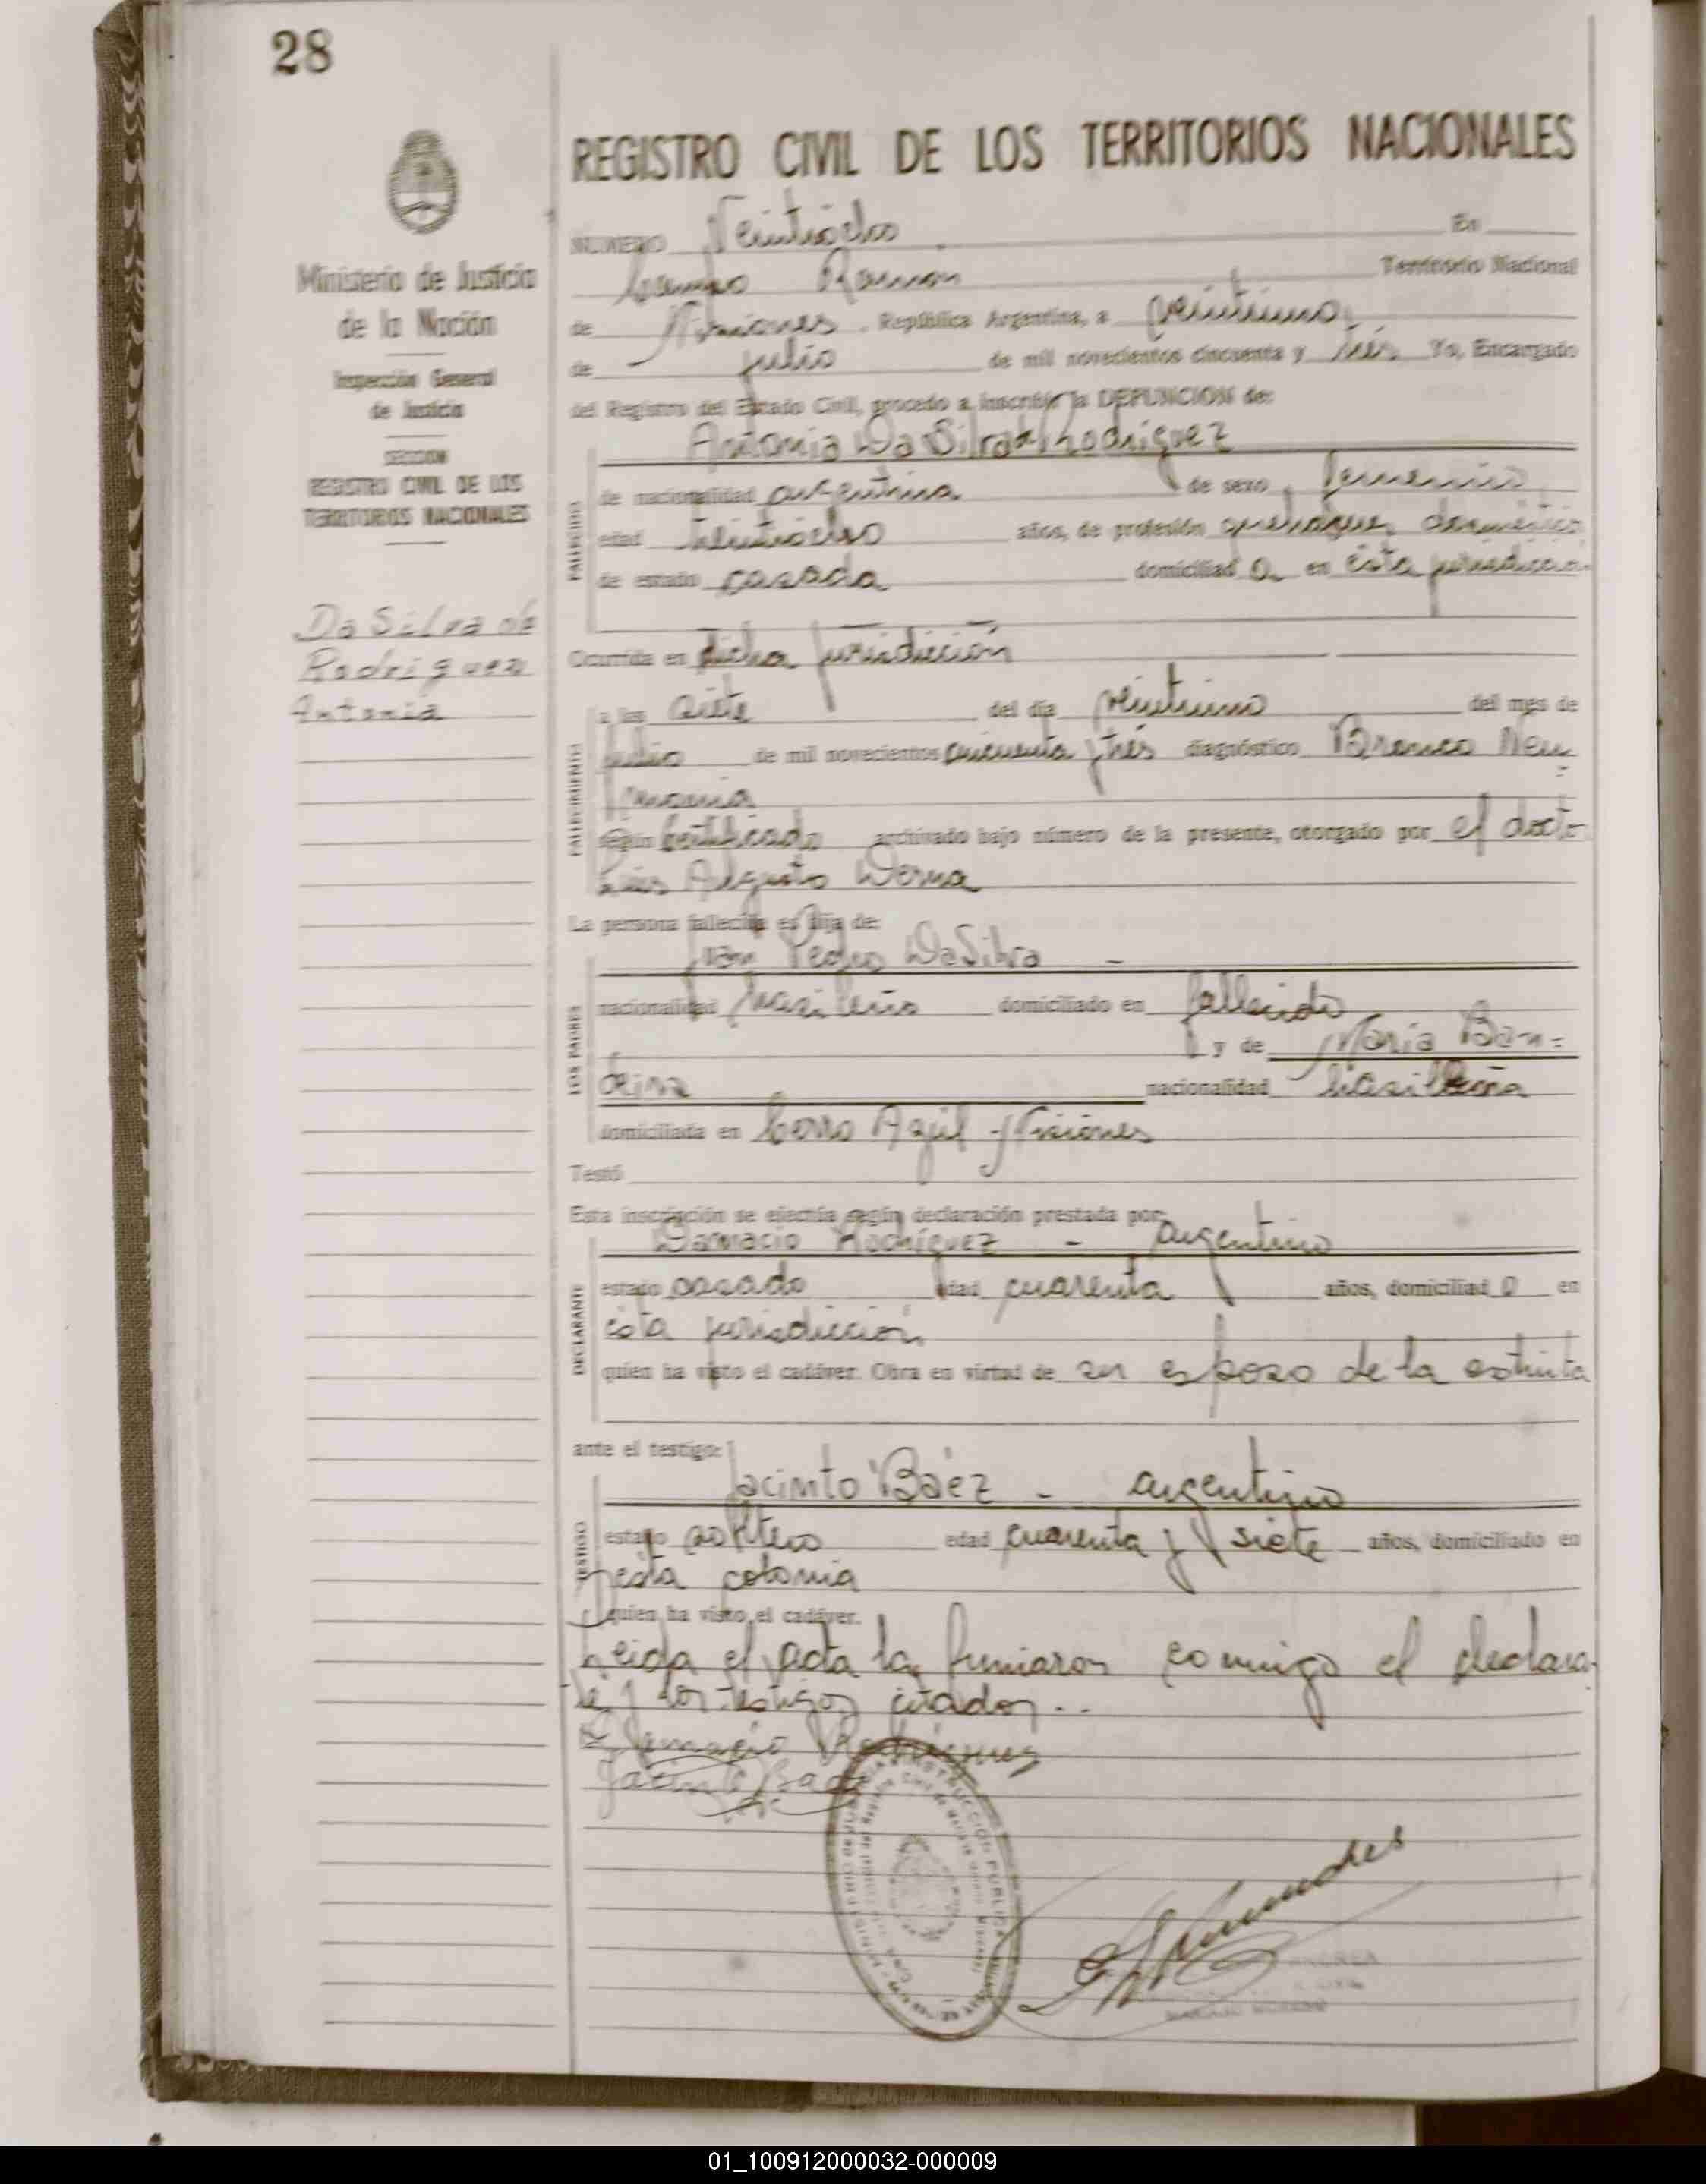 28
REGISTRO CIVIL DE LOS TERRITORIOS NACIONALES
Ministerio de Justicia
de la Nación
Inspección General
de Justicia
SECCION
REGISTRO CIVIL DE LOS
TERRITORIOS NACIONALES
Da Silva de
Rodriguez
Antonia
NUMERO Veintiocho En
Campo Ramón Territorio Nacional
de Misiones. República Argentina, a veintiuno
de julio de mil novecientos cincuenta y trés Yo, Encargado
del Registro del Estado Civil, procedo a inscribir la DEFUNCION de:
Antonia Da Silva de Rodríguez
FALLECIDO
de nacionalidad argentina de sexo femenino
edad treintiocho años, de profesión quehaceres domésticos
de estado casada domiciliad a en ésta jurisdicción
Ocurrida en dicha jurisdicción
FALLECIMIENTO
a las siete del día veintiuno del mes de
julio de mil novecientos cincuenta y trés diagnóstico Bronco Neu-
monía
según certificado archivado bajo número de la presente, otorgado por el doctor
Luis Augusto Derna
La persona fallecida es hija de:
LOS PADRES
Juan Pedro DaSilva -
nacionalidad brasileño domiciliado en fallecido
y de María Ban=
deira nacionalidad brasileña
domiciliada en Cerro Azul - Misiones
Testó
Esta inscripción se efectúa según declaración prestada por:
DECLARANTE
Damacio Rodríguez - argentino
estado casado edad cuarenta años, domiciliad o en
ésta jurisdicción
quien ha visto el cadáver. Obra en virtud de ser esposo de la extinta
ante el testigo:
TESTIGO
Jacinto Báez - argentino
estado soltero edad cuarenta y siete años, domiciliado en
ésta colonia
quien ha visto el cadáver.
Leida el acta la firmaron conmigo el declaran-
te y los testigos citados..
Damacio Rodriguez
Jacinto Baez
01_100912000032-000009